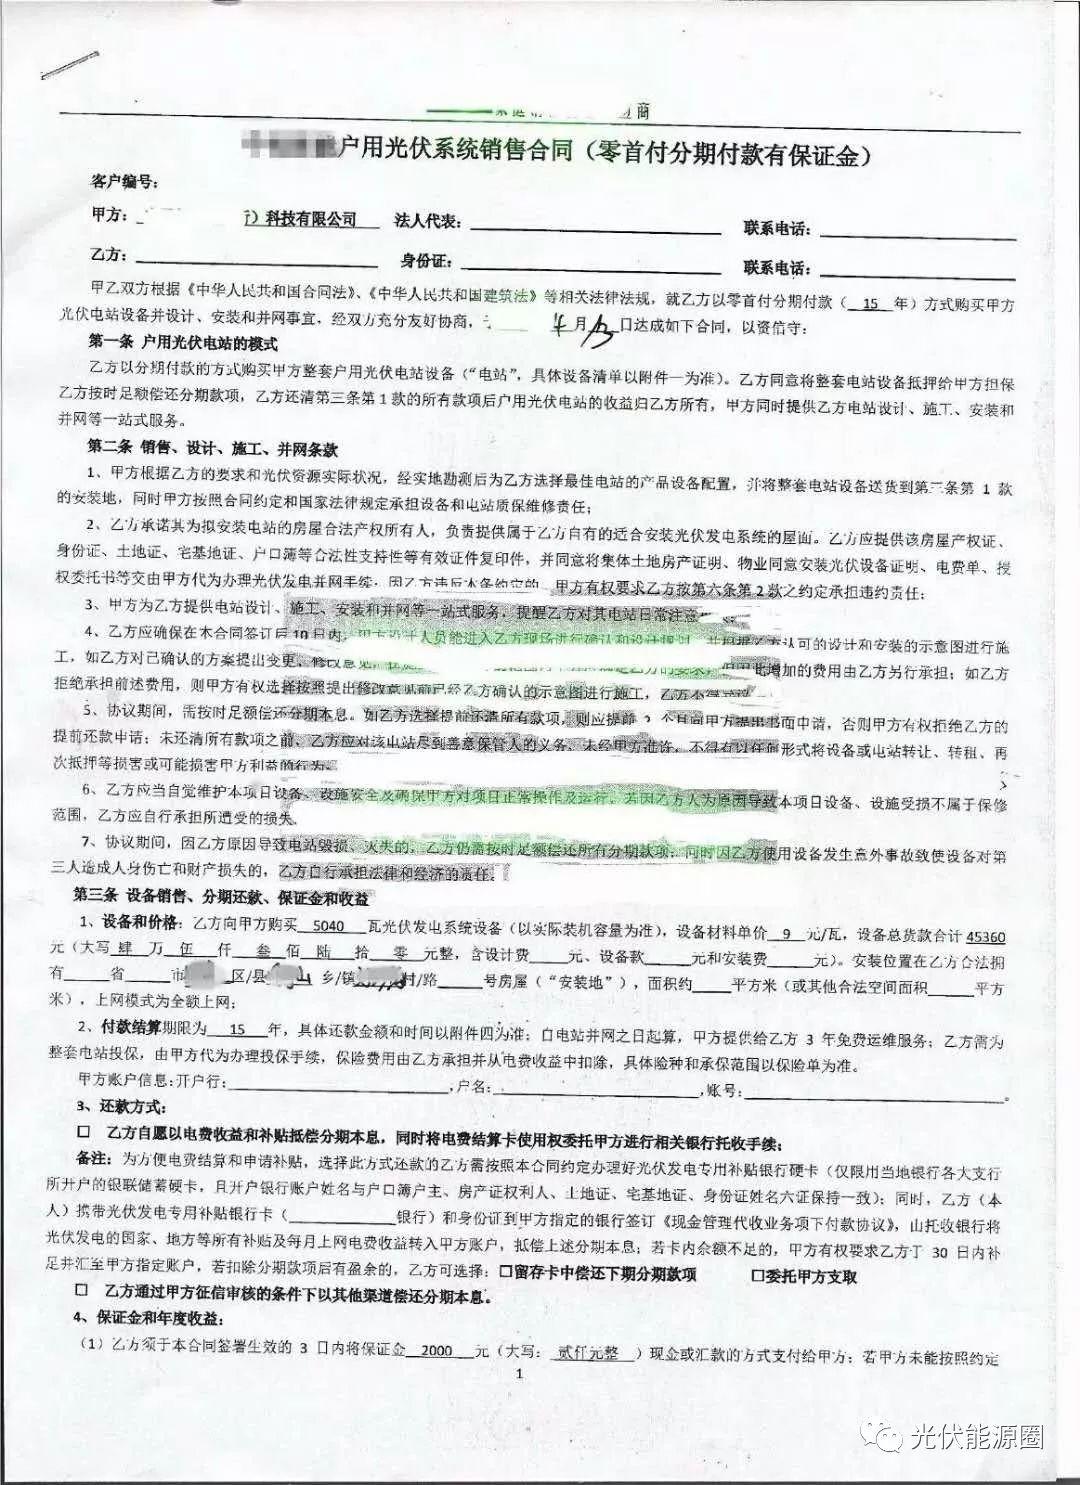 商
户用光伏系统销售合同（零首付分期付款有保证金）
客户编号：
甲方： 科技有限公司 法人代表： 联系电话：
乙方： 身份证： 联系电话：
甲乙双方根据《中华人民共和国合同法》、《中华人民共和国建筑法》等相关法律法规，就乙方以零首付分期付款（ 15 年）方式购买甲方
光伏电站设备并设计、安装和并网事宜，经双方充分友好协商， 年 月 日达成如下合同，以资信守：
第一条 户用光伏电站的模式
乙方以分期付款的方式购买甲方整套户用光伏电站设备（“电站”，具体设备清单以附件一为准）。乙方同意将整套电站设备抵押给甲方担保
乙方按时足额偿还分期款项，乙方还清第三条第 1 款的所有款项后户用光伏电站的收益归乙方所有，甲方同时提供乙方电站设计、施工、安装和
并网等一站式服务。
第二条 销售、设计、施工、并网条款
1、甲方根据乙方的要求和光伏资源实际状况，经实地勘测后为乙方选择最佳电站的产品设备配置，并将整套电站设备送货到第三条第 1 款
的安装地，同时甲方按照合同约定和国家法律规定承担设备和电站质保维修责任；
2、乙方承诺其为拟安装电站的房屋合法产权所有人，负责提供属于乙方自有的适合安装光伏发电系统的屋面。乙方应提供该房屋产权证、
身份证、土地证、宅基地证、户口簿等合法性支持性等有效证件复印件，并同意将集体土地房产证明、物业同意安装光伏设备证明、电费单、授
权委托书等交由甲方代为办理光伏发电并网手续；因乙方违反本条约定的，甲方有权要求乙方按第六条第 2 款之约定承担违约责任；
3、甲方为乙方提供电站设计、施工、安装和并网等一站式服务，提醒乙方对其电站日常注意
4、乙方应确保在本合同签订后 10 日内，甲方设计人员能进入乙方现场进行确认和设计规划，并根据乙方认可的设计和安装的示意图进行施
工，如乙方对已确认的方案提出变更、修改意见， 乙方的要求，但因此增加的费用由乙方另行承担；如乙方
拒绝承担前述费用，则甲方有权选择按照提出修改意见前已经乙方确认的示意图进行施工，乙方不得
5、协议期间，需按时足额偿还分期本息。如乙方选择提前还清所有款项，则应提前 2 个月向甲方提出书面申请，否则甲方有权拒绝乙方的
提前还款申请；未还清所有款项之前，乙方应对该电站尽到善意保管人的义务，未经甲方准许，不得有以任何形式将设备或电站转让、转租、再
次抵押等损害或可能损害甲方利益的行为。
6、乙方应当自觉维护本项目设备、设施安全及确保甲方对项目正常操作及运行，若因乙方人为原因导致本项目设备、设施受损不属于保修
范围，乙方应自行承担所遭受的损失。
7、协议期间，因乙方原因导致电站毁损、灭失的，乙方仍需按时足额偿还所有分期款项；同时因乙方使用设备发生意外事故致使设备对第
三人造成人身伤亡和财产损失的，乙方自行承担法律和经济的责任。
第三条 设备销售、分期还款、保证金和收益
1、设备和价格：乙方向甲方购买 5040 瓦光伏发电系统设备（以实际装机容量为准），设备材料单价 9 元/瓦，设备总货款合计 45360
元（大写 肆 万 伍 仟 叁 佰 陆 拾 零 元整，含设计费 元、设备款 元和安装费 元）。安装位置在乙方合法拥
有 省 市 区/县 乡/镇 村/路 号房屋（“安装地”），面积约 平方米（或其他合法空间面积 平方
米），上网模式为全额上网；
2、付款结算期限为 15 年，具体还款金额和时间以附件四为准；自电站并网之日起算，甲方提供给乙方 3 年免费运维服务；乙方需为
整套电站投保，由甲方代为办理投保手续，保险费用由乙方承担并从电费收益中扣除，具体险种和承保范围以保险单为准。
甲方账户信息：开户行： ，户名： ，账号： 。
3、还款方式：
□ 乙方自愿以电费收益和补贴抵偿分期本息，同时将电费结算卡使用权委托甲方进行相关银行托收手续；
备注：为方便电费结算和申请补贴，选择此方式还款的乙方需按照本合同约定办理好光伏发电专用补贴银行硬卡（仅限用当地银行各大支行
所开户的银联储蓄硬卡，且开户银行账户姓名与户口簿户主、房产证权利人、土地证、宅基地证、身份证姓名六证保持一致）；同时，乙方（本
人）携带光伏发电专用补贴银行卡（ 银行）和身份证到甲方指定的银行签订《现金管理代收业务项下付款协议》，由托收银行将
光伏发电的国家、地方等所有补贴及每月上网电费收益转入甲方账户，抵偿上述分期本息；若卡内余额不足的，甲方有权要求乙方于 30 日内补
足并汇至甲方指定账户，若扣除分期款项后有盈余的，乙方可选择：□留存卡中偿还下期分期款项 □委托甲方支取
□ 乙方通过甲方征信审核的条件下以其他渠道偿还分期本息。
4、保证金和年度收益：
（1）乙方须于本合同签署生效的 3 日内将保证金 2000 元（大写： 贰仟元整 ）现金或汇款的方式支付给甲方；若甲方未能按照约定
1
光伏能源圈